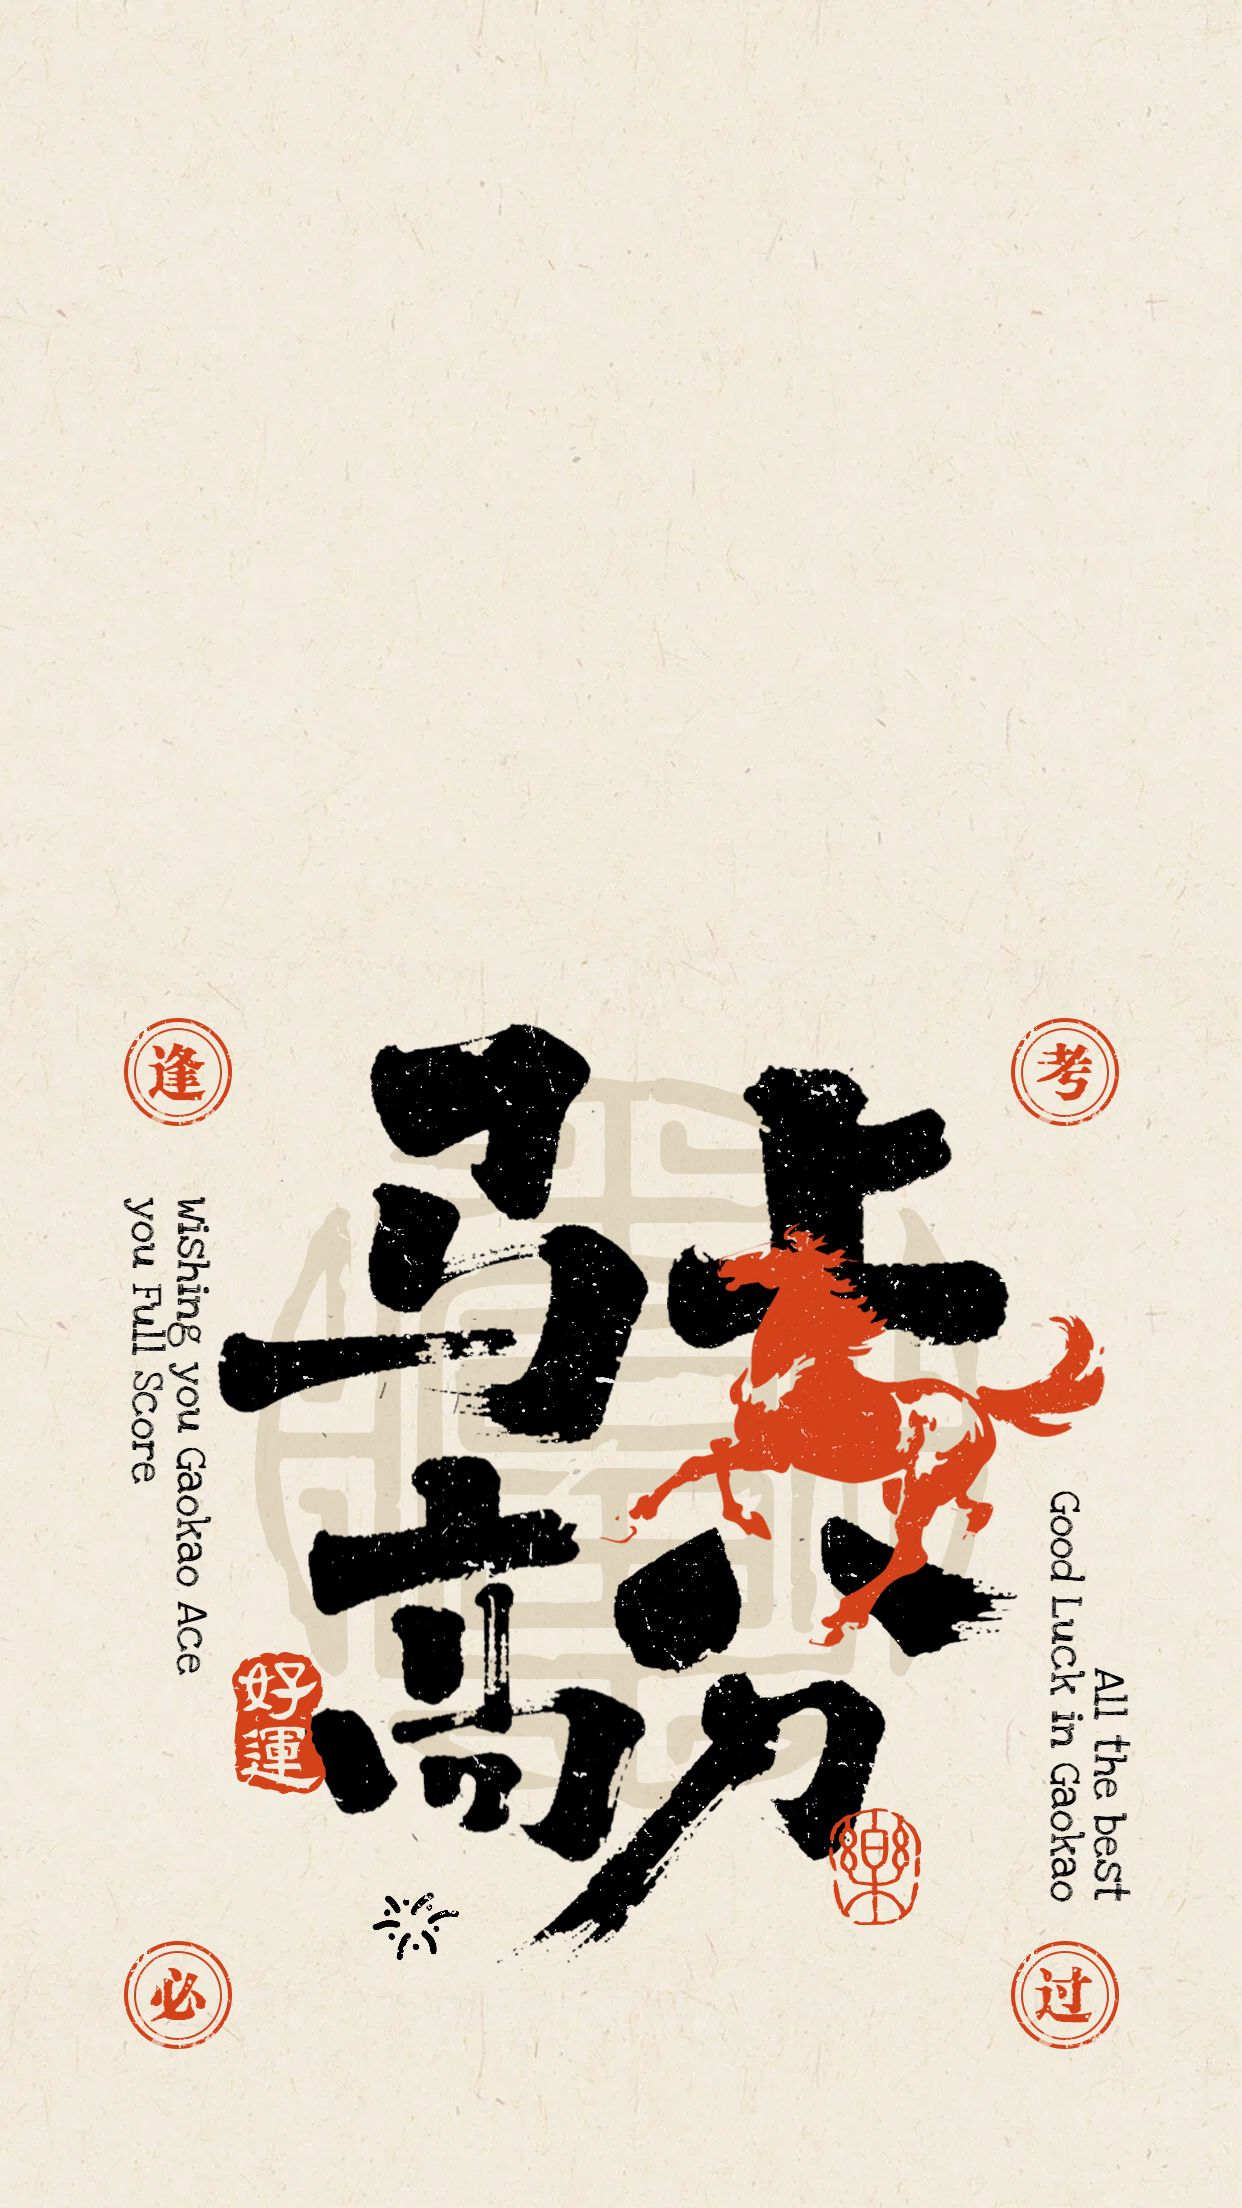 逢
考
马上
高分
Wishing you Gaokao Ace
you Full Score
All the best
Good Luck in Gaokao
好運
樂
必
过